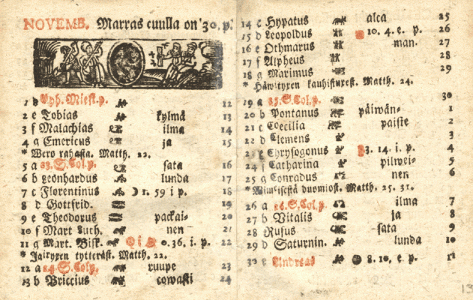 NOVEMB. Marras cuulla on 30. p.
1 d Pyh. Miest. p. 12
2 e Tobias kylmä 13
3 f Malachias ilma 14
4 g Emericus ja 15
* Wero rahasta. Matth. 22.
5 a 23. S. Col. p. sata 16
6 b Leonhardus lunda 17
7 c Florentinus 1. 59 i p. 18
8 d Gottfrid. 19
9 e Theodorus packai- 20
10 f Mart. Luth. nen 21
11 g Mart. Bisk. 0. 36. i. p. 22
* Jairyxen tyttärest. Matth.
12 a 24. S. Col. p. ruupe 23
13 b Briccius cowasti 24
14 c Hypatus alca 25
15 d Leopoldus 10. 4. e. p. 26
16 e Othmarus man. 27
17 f Alpheus 28
18 g Maximus 29
* Hävityxen kauhistuxest. Matth. 24.
19 a 25. S. Col. p. 30
20 b Pontanus päiwän- 1
21 c Cœcilia paiste 2
22 d Clemens 3
23 e Chrysogonus 3. 14. i. p. 4
24 f Catharina pilwei- 5
25 g Conradus nen 6
* Wiimeisestä duomiost. Matth. 25. 31.
26 a 26. S. Col. p. ilma 7
27 b Vitalis ja 8
28 c Rufus sata 9
29 d Saturnin. lunda 10
30 e Andreas 8. 10. e. p. 11